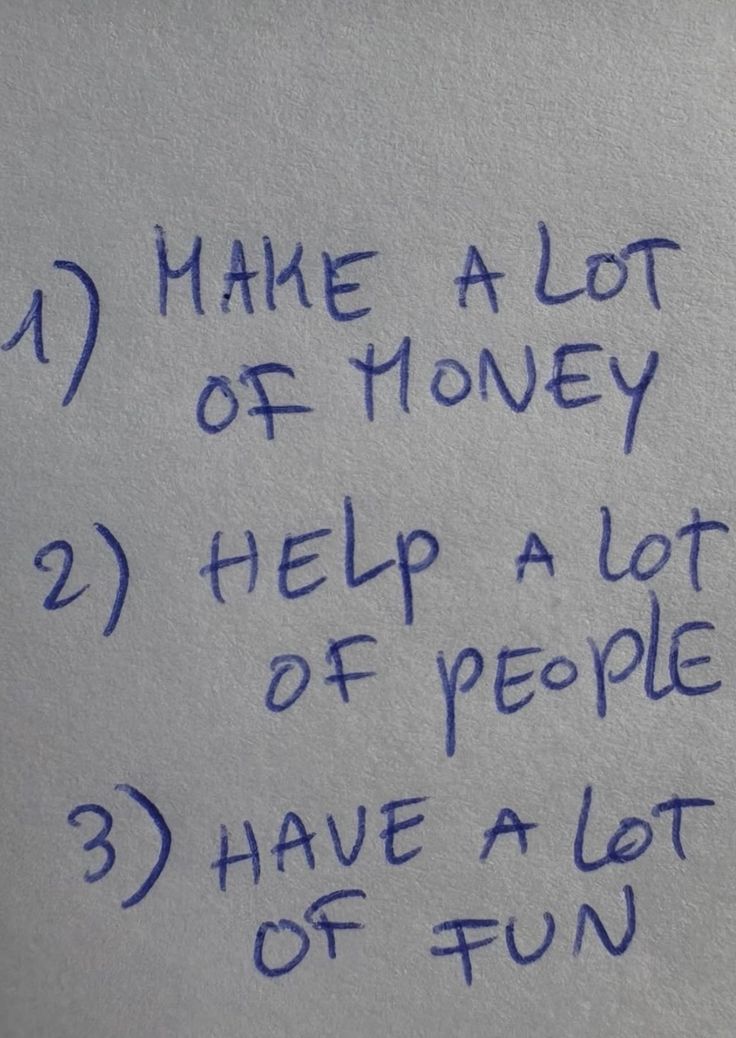 1) MAKE A LOT
OF MONEY
2) HELP A LOT
OF PEOPLE
3) HAVE A LOT
OF FUN